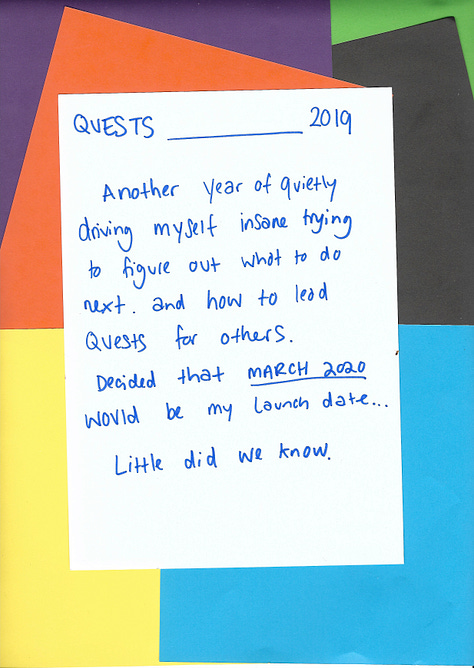 QUESTS ________________ 2019
Another year of quietly
driving myself insane trying
to figure out what to do
next. and how to lead
Quests for others.
Decided that MARCH 2020
would be my launch date...
Little did we know.